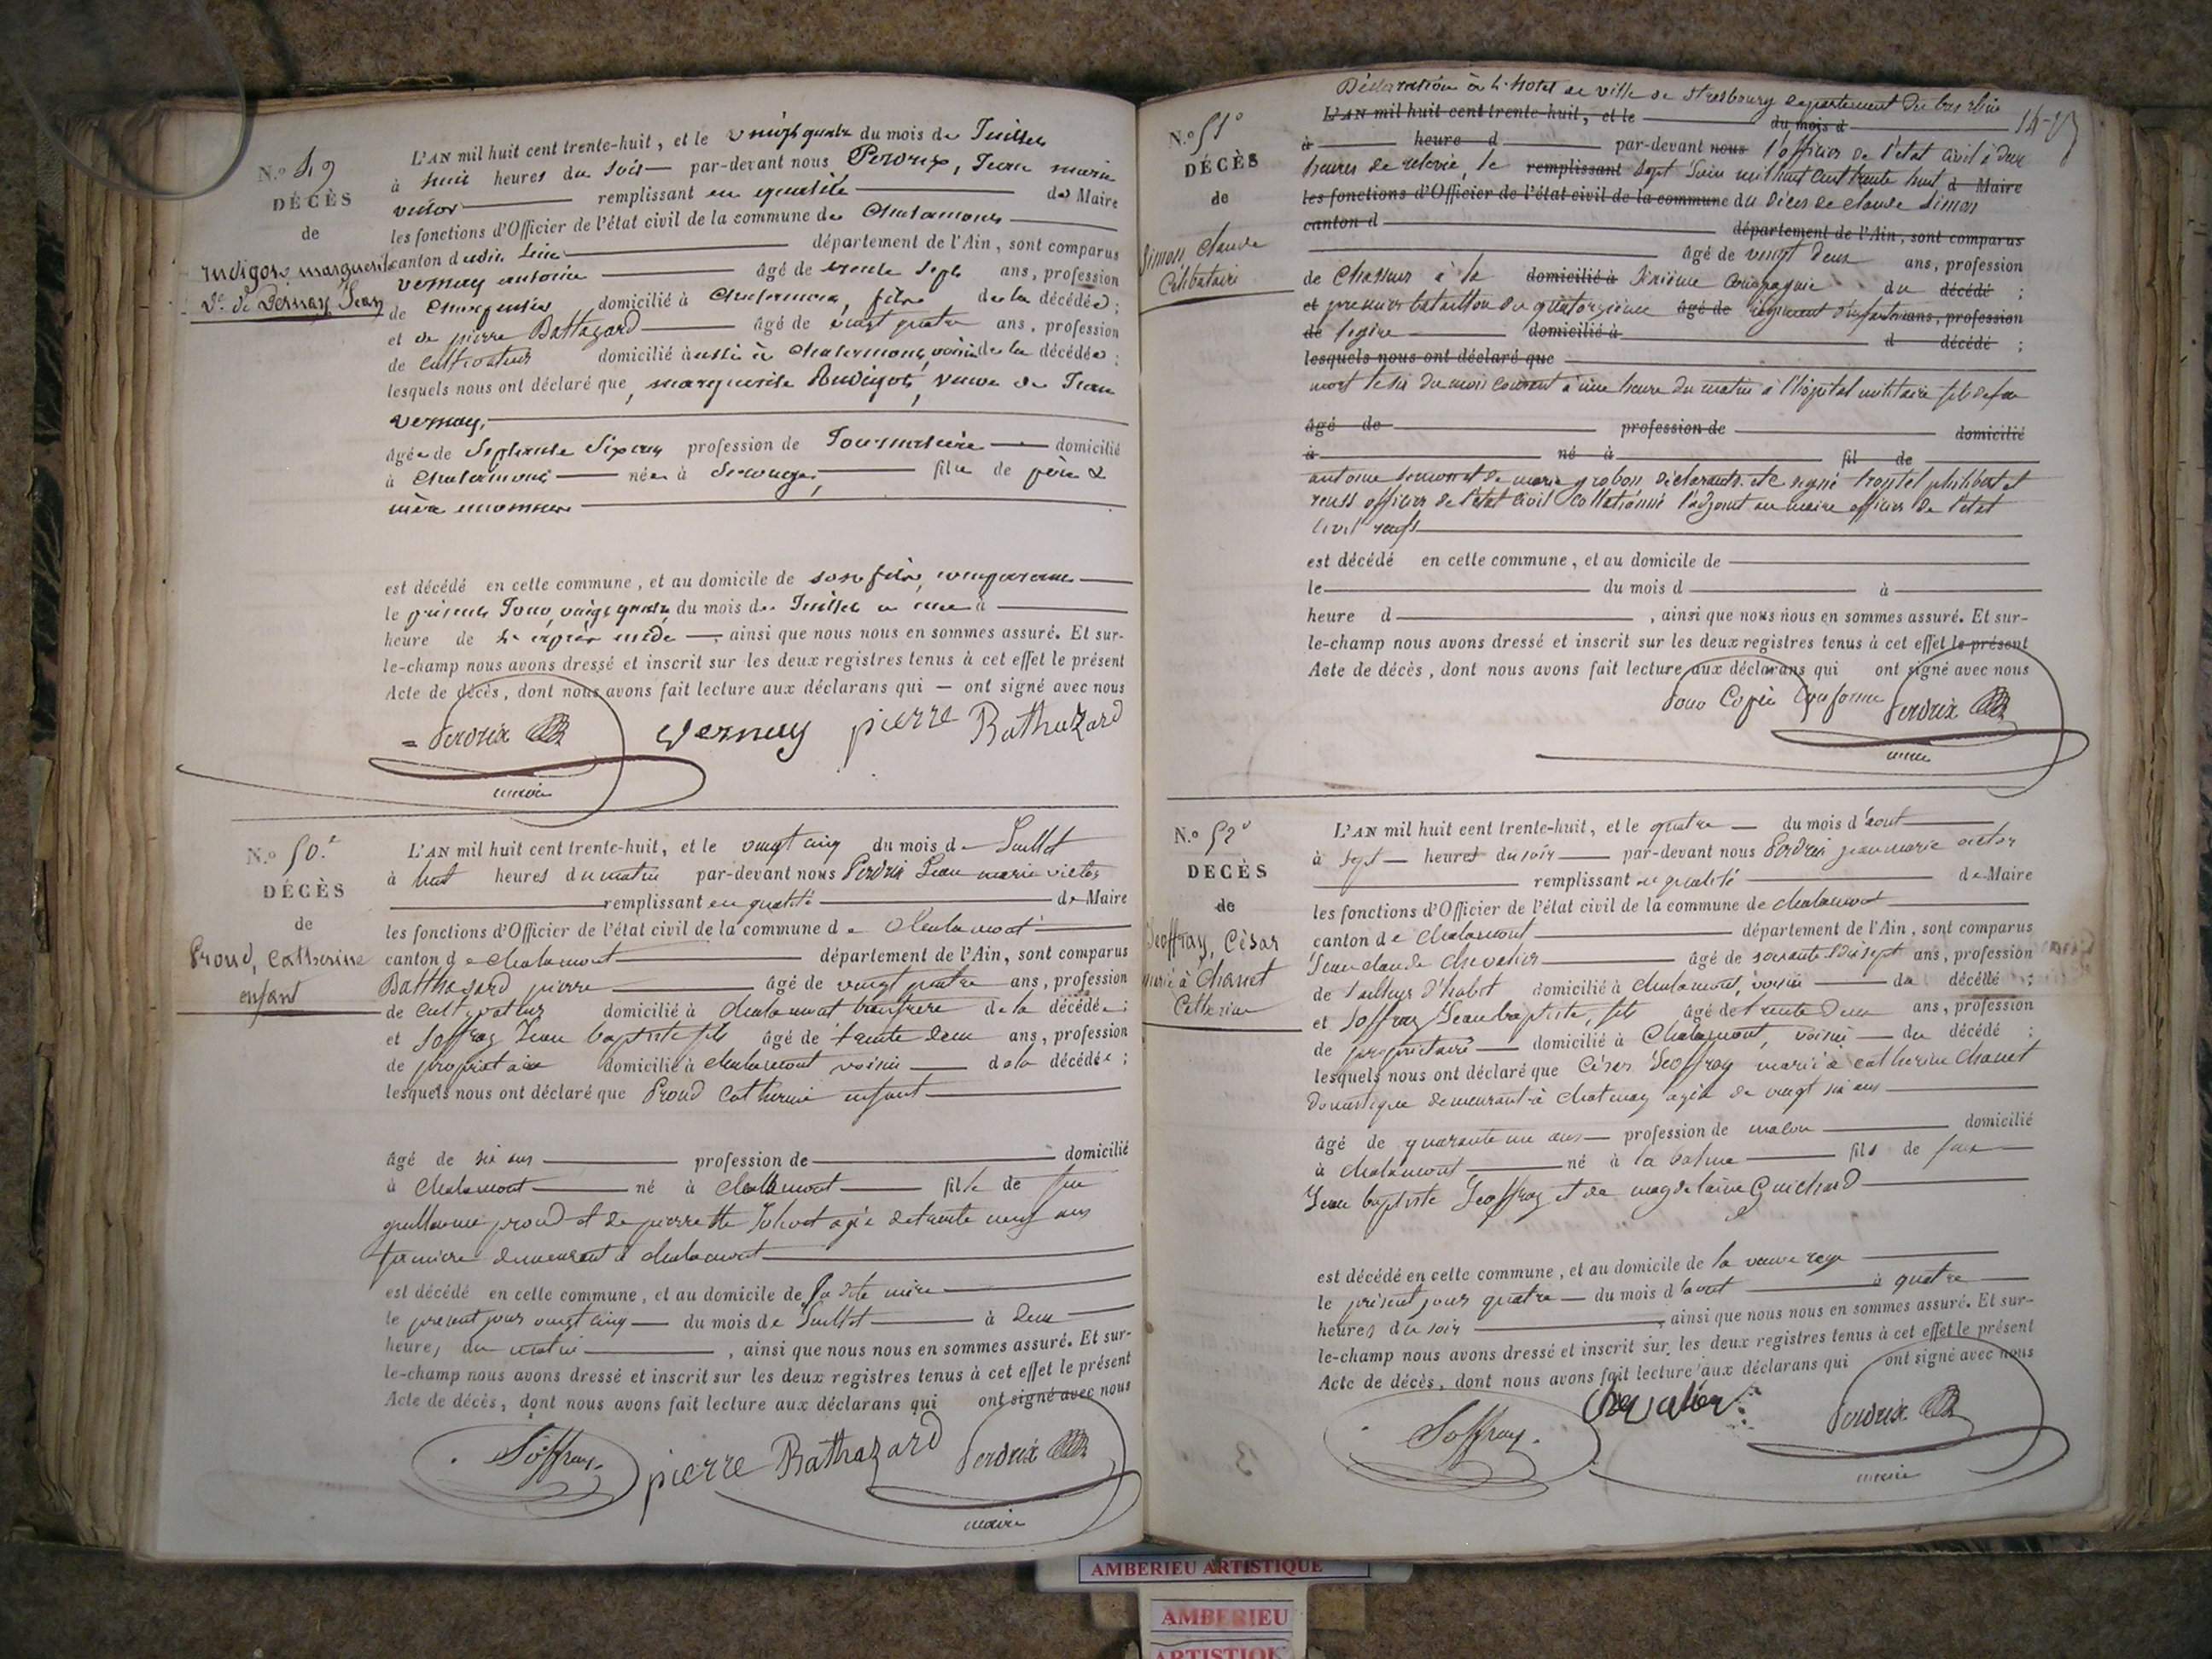 N.o 49
DÉCÈS
de
rudigoz marguerite
Ve. de Vernay Jean
L'AN mil huit cent trente-huit, et le vingt quatre du mois de Juillet
à huit heures du soir par-devant nous Perdrix, Jean marie
victor remplissant en qualité de Maire
les fonctions d'Officier de l'état civil de la commune de Chalamont
canton dudit lieu département de l'Ain, sont comparus
vernay antoine âgé de trente sept ans, profession
de Charpentier domicilié à Chalamont, fils de la décédée;
et de pierre Battazard âgé de vingt quatre ans, profession
de cultivateur domicilié aussi à Chalamont, voisin de la décédée;
lesquels nous ont déclaré que, marguerite Rudigoz, veuve de Jean
vernay,
âgée de Septante Six ans profession de Journalière domicilié
à Chalamont née à fille de père &
mère
est décédé en cette commune, et au domicile de son fils, comparant
le présent Jour, vingt quatre du mois de Juillet à
heure de midi, ainsi que nous nous en sommes assuré. Et sur-
le-champ nous avons dressé et inscrit sur les deux registres tenus à cet effet le présent
Acte de décès, dont nous avons fait lecture aux déclarans qui — ont signé avec nous
Perdrix Vernay pierre Bathazard
maire
N.o 50.
DÉCÈS
de
Proud, Catherine
enfant
L'AN mil huit cent trente-huit, et le vingt cinq du mois de Juillet
à huit heures du matin par-devant nous Perdrix Jean marie victor
remplissant en qualité de Maire
les fonctions d'Officier de l'état civil de la commune de Chalamont
canton de chalamont département de l'Ain, sont comparus
Batthazard pierre âgé de vingt quatre ans, profession
de cultivateur domicilié à chalamont beaufrere de la décédée;
et Joffray Jean baptiste fils âgé de trente deux ans, profession
de proprietaire domicilié à chalamont voisin de la décédée;
lesquels nous ont déclaré que Proud Catherine enfant
âgé de six ans profession de domicilié
à chalamont né à chalamont fille de feu
guillaume proud et de pierrette Jolivet agée de trente neuf ans
fermière demeurant à chalamont
est décédé en cette commune, et au domicile de sa dite mère
le présent jour vingt cinq du mois de Juillet à deux
heures du matin, ainsi que nous nous en sommes assuré. Et sur-
le-champ nous avons dressé et inscrit sur les deux registres tenus à cet effet le présent
Acte de décès, dont nous avons fait lecture aux déclarans qui ont signé avec nous
Joffray pierre Bathazard Perdrix
maire
Déclaration à l'hotel de ville de Strasbourg departement du bas rhin
N.o 51
DÉCÈS
de
Simon Claude
Célibataire
L'AN mil huit cent trente-huit, et le du mois d
à heure d par-devant nous l'officier de l'état civil à deux
heures de relevée, le remplissant sept Juin mil huit cent trente huit d Maire
les fonctions d'Officier de l'état civil de la commune du décès de claude Simon
canton d département de l'Ain, sont comparus
âgé de vingt deux ans, profession
de Chasseur à la domicilié à sixième compagnie du décédé;
et premier bataillon du quatorzième âgé de régiment d'infanterie ans, profession
de légère domicilié à d décédé;
lesquels nous ont déclaré que
mort le six du mois courant à une heure du matin à l'hôpital militaire fils de feu
âgé de profession de domicilié
à né à fil de
antoine simon et de marie grobon déclarants etc signé philibert et
officier de l'état civil Collationné l'adjoint au maire officier de l'état
civil
est décédé en cette commune, et au domicile de
le du mois d à
heure d, ainsi que nous nous en sommes assuré. Et sur-
le-champ nous avons dressé et inscrit sur les deux registres tenus à cet effet le présent
Acte de décès, dont nous avons fait lecture aux déclarans qui ont signé avec nous
Pour Copie Conforme Perdrix
maire
N.o 52
DÉCÈS
de
Geoffray, César
marié à Chanet
Catherine
L'AN mil huit cent trente-huit, et le quatre du mois d'août
à sept heures du soir par-devant nous Perdrix jean marie victor
remplissant en qualité de Maire
les fonctions d'Officier de l'état civil de la commune de chalamont
canton de chalamont département de l'Ain, sont comparus
Jean claude chevalier âgé de soixante dix sept ans, profession
de tailleur d'habit domicilié à chalamont, voisin du décédé;
et Joffray Jean baptiste, fils âgé de trente deux ans, profession
de propriétaire domicilié à Chalamont, voisin du décédé;
lesquels nous ont déclaré que César Geoffray marié à catherine chanet
domestique demeurant à chatenay agée de vingt six ans
âgé de quarante un ans profession de maçon domicilié
à chalamont né à la balme fils de feu
Jean baptiste Geoffray et de magdelaine Guichard
est décédé en cette commune, et au domicile de la veuve
le présent jour quatre du mois d'août à quatre
heures du soir, ainsi que nous nous en sommes assuré. Et sur-
le-champ nous avons dressé et inscrit sur les deux registres tenus à cet effet le présent
Acte de décès, dont nous avons fait lecture aux déclarans qui ont signé avec nous
Joffray chevalier Perdrix
maire
AMBERIEU ARTISTIQUE
AMBERIEU
ARTISTIQUE